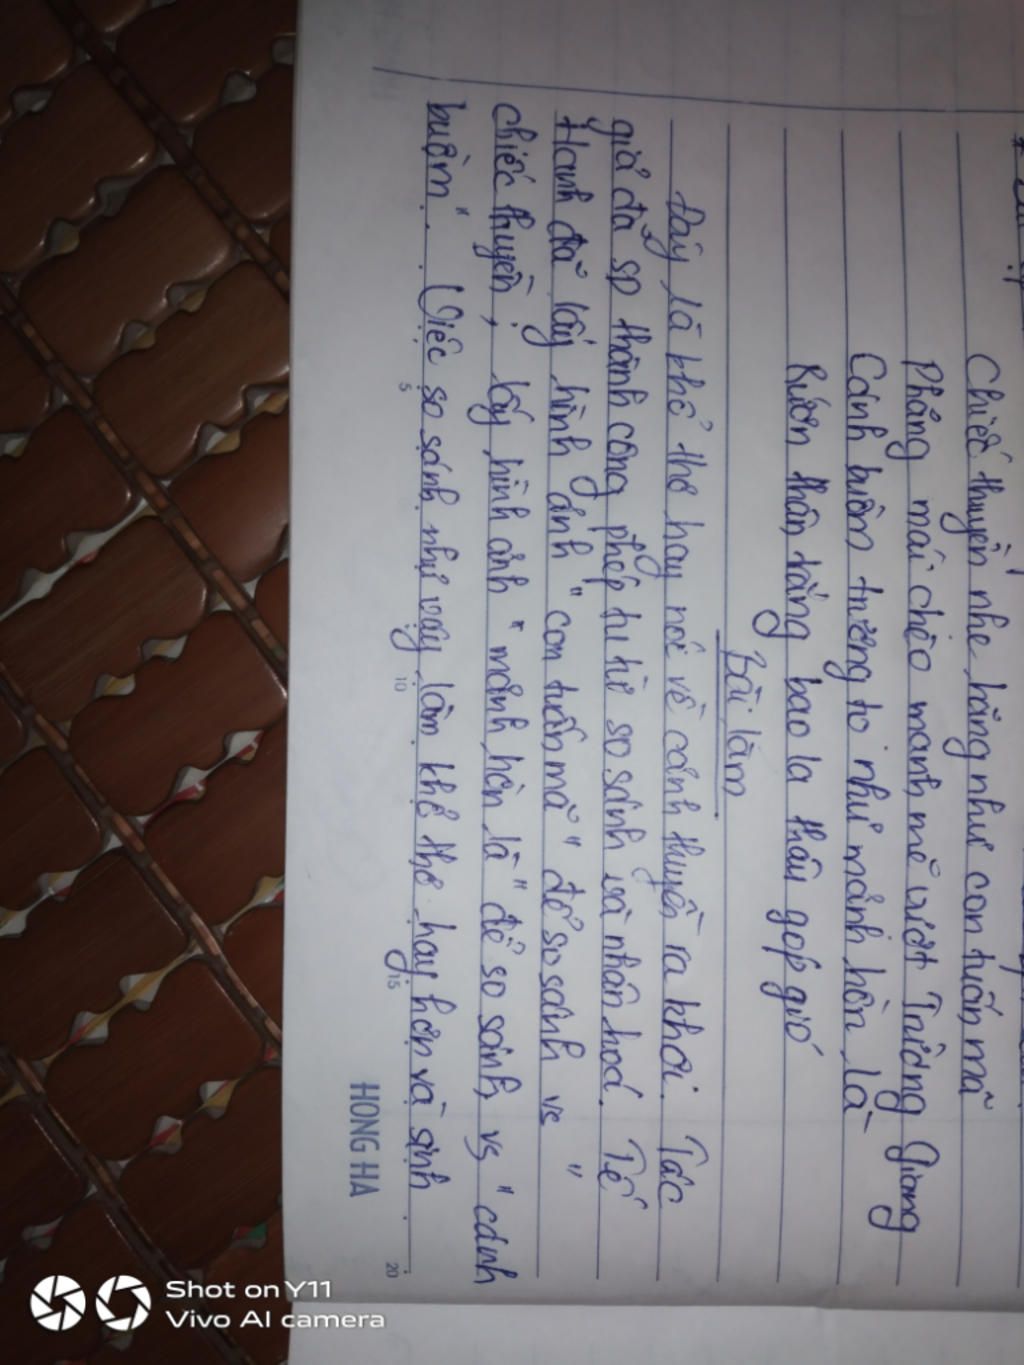 Chiếc thuyền nhẹ hăng như con tuấn mã
Phăng mái chèo mạnh mẽ vượt Trường Giang
Cánh buồm trương to như mảnh hồn làng
Rướn thân trắng bao la thâu góp gió
Bài làm
Đây là khổ thơ hay nói về cảnh thuyền ra khơi. Tác
giả đã sp thành công phép tu từ so sánh và nhân hoá. Tế
Hanh đã lấy hình ảnh "con tuấn mã" để so sánh vs "
chiếc thuyền, lấy hình ảnh "mảnh hồn là" để so sánh vs "cánh
buồm". Việc so sánh như vậy làm khổ thơ hay hơn và sinh
5 10 15 20
HONG HA
Shot on Y11
Vivo AI camera